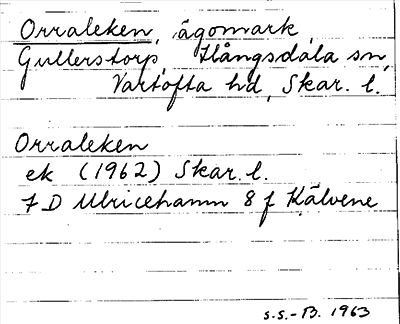 Orraleken, ägomark,
Gullerstorp, Hångsdala sn,
Vartofta hd, Skar. l.
Orraleken
ek (1962) Skar. l.
7 D Ulricehamn 8 f Kälvene
S.S.-B. 1963